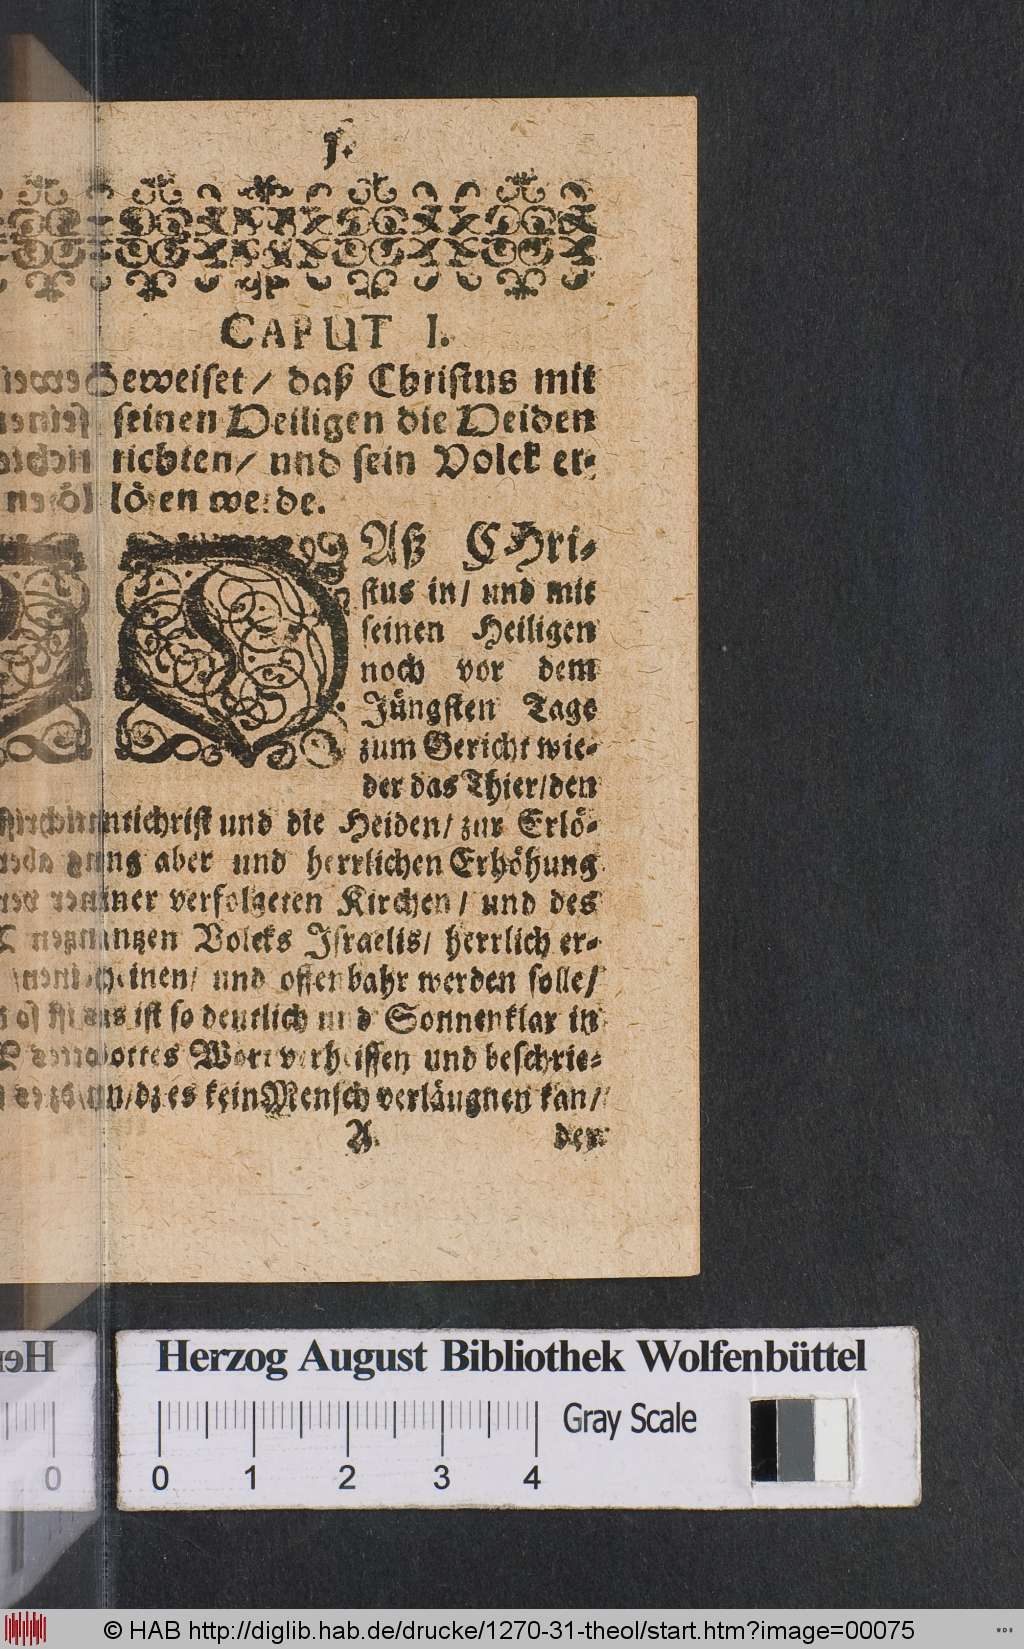 1.
CAPUT I.
Beweiset / daß Christus mit
seinen Heiligen die Heiden
richten / und sein Volck er-
lösen werde.
DAß CHri-
stus in / und mit
seinen Heiligen
noch vor dem
Jüngsten Tage
zum Gericht wie-
der das Thier / den
Antichrist und die Heiden / zur Erlö-
sung aber und herrlichen Erhöhung
seiner verfolgeten Kirchen / und des
gantzen Volcks Israelis / herrlich er-
scheinen / und offenbahr werden solle /
das ist so deutlich und Sonnenklar in
Gottes Wort verheissen und beschrie-
ben / dz es kein Mensch verläugnen kan /
A
der
Herzog August Bibliothek Wolfenbüttel
0 1 2 3 4
Gray Scale
© HAB http://diglib.hab.de/drucke/1270-31-theol/start.htm?image=00075